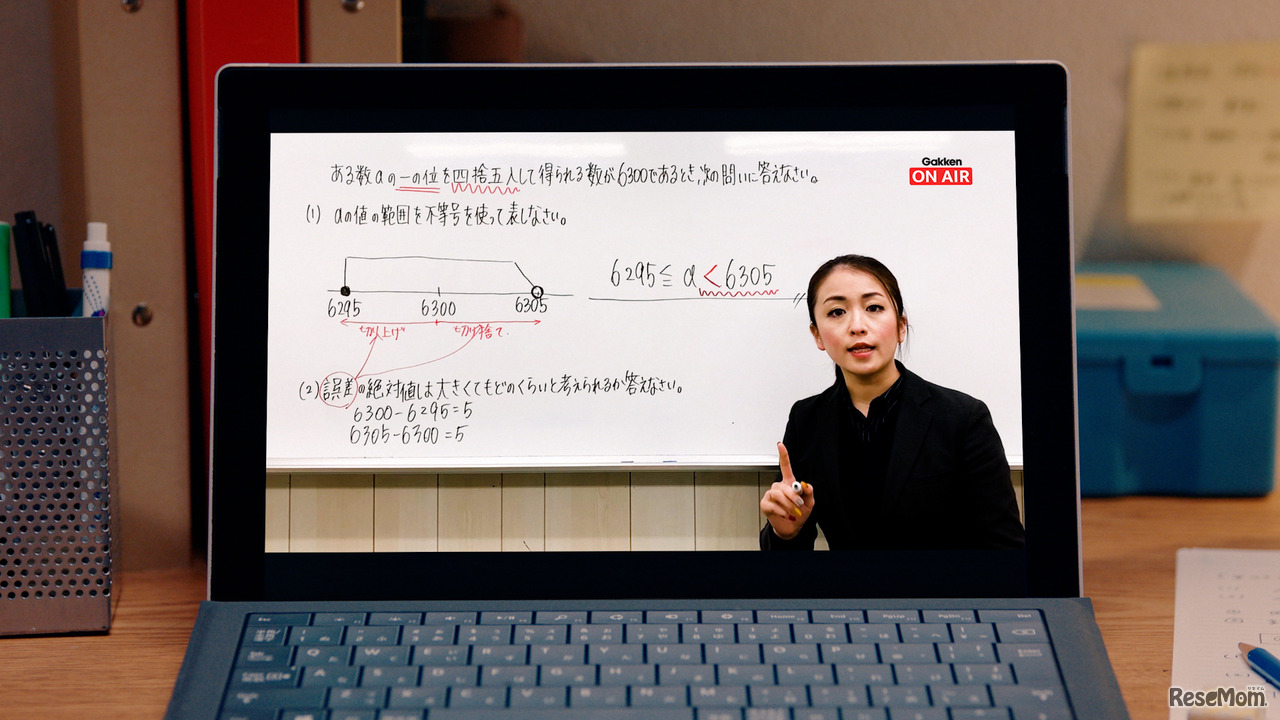 Gakken
ON AIR
ある数aの一の位を四捨五入して得られる数が6300であるとき、次の問いに答えなさい。
(1) aの値の範囲を不等号を使って表しなさい。
6295≦a<6305
6295 6300 6305
切り上げ 切り捨て
(2)誤差の絶対値は大きくてもどのくらいと考えられるか答えなさい。
6300-6295=5
6305-6300=5
Q W E R T Y U I O P
A S D F G H J K L
Home End PgUp PgDn Del
ReseMom